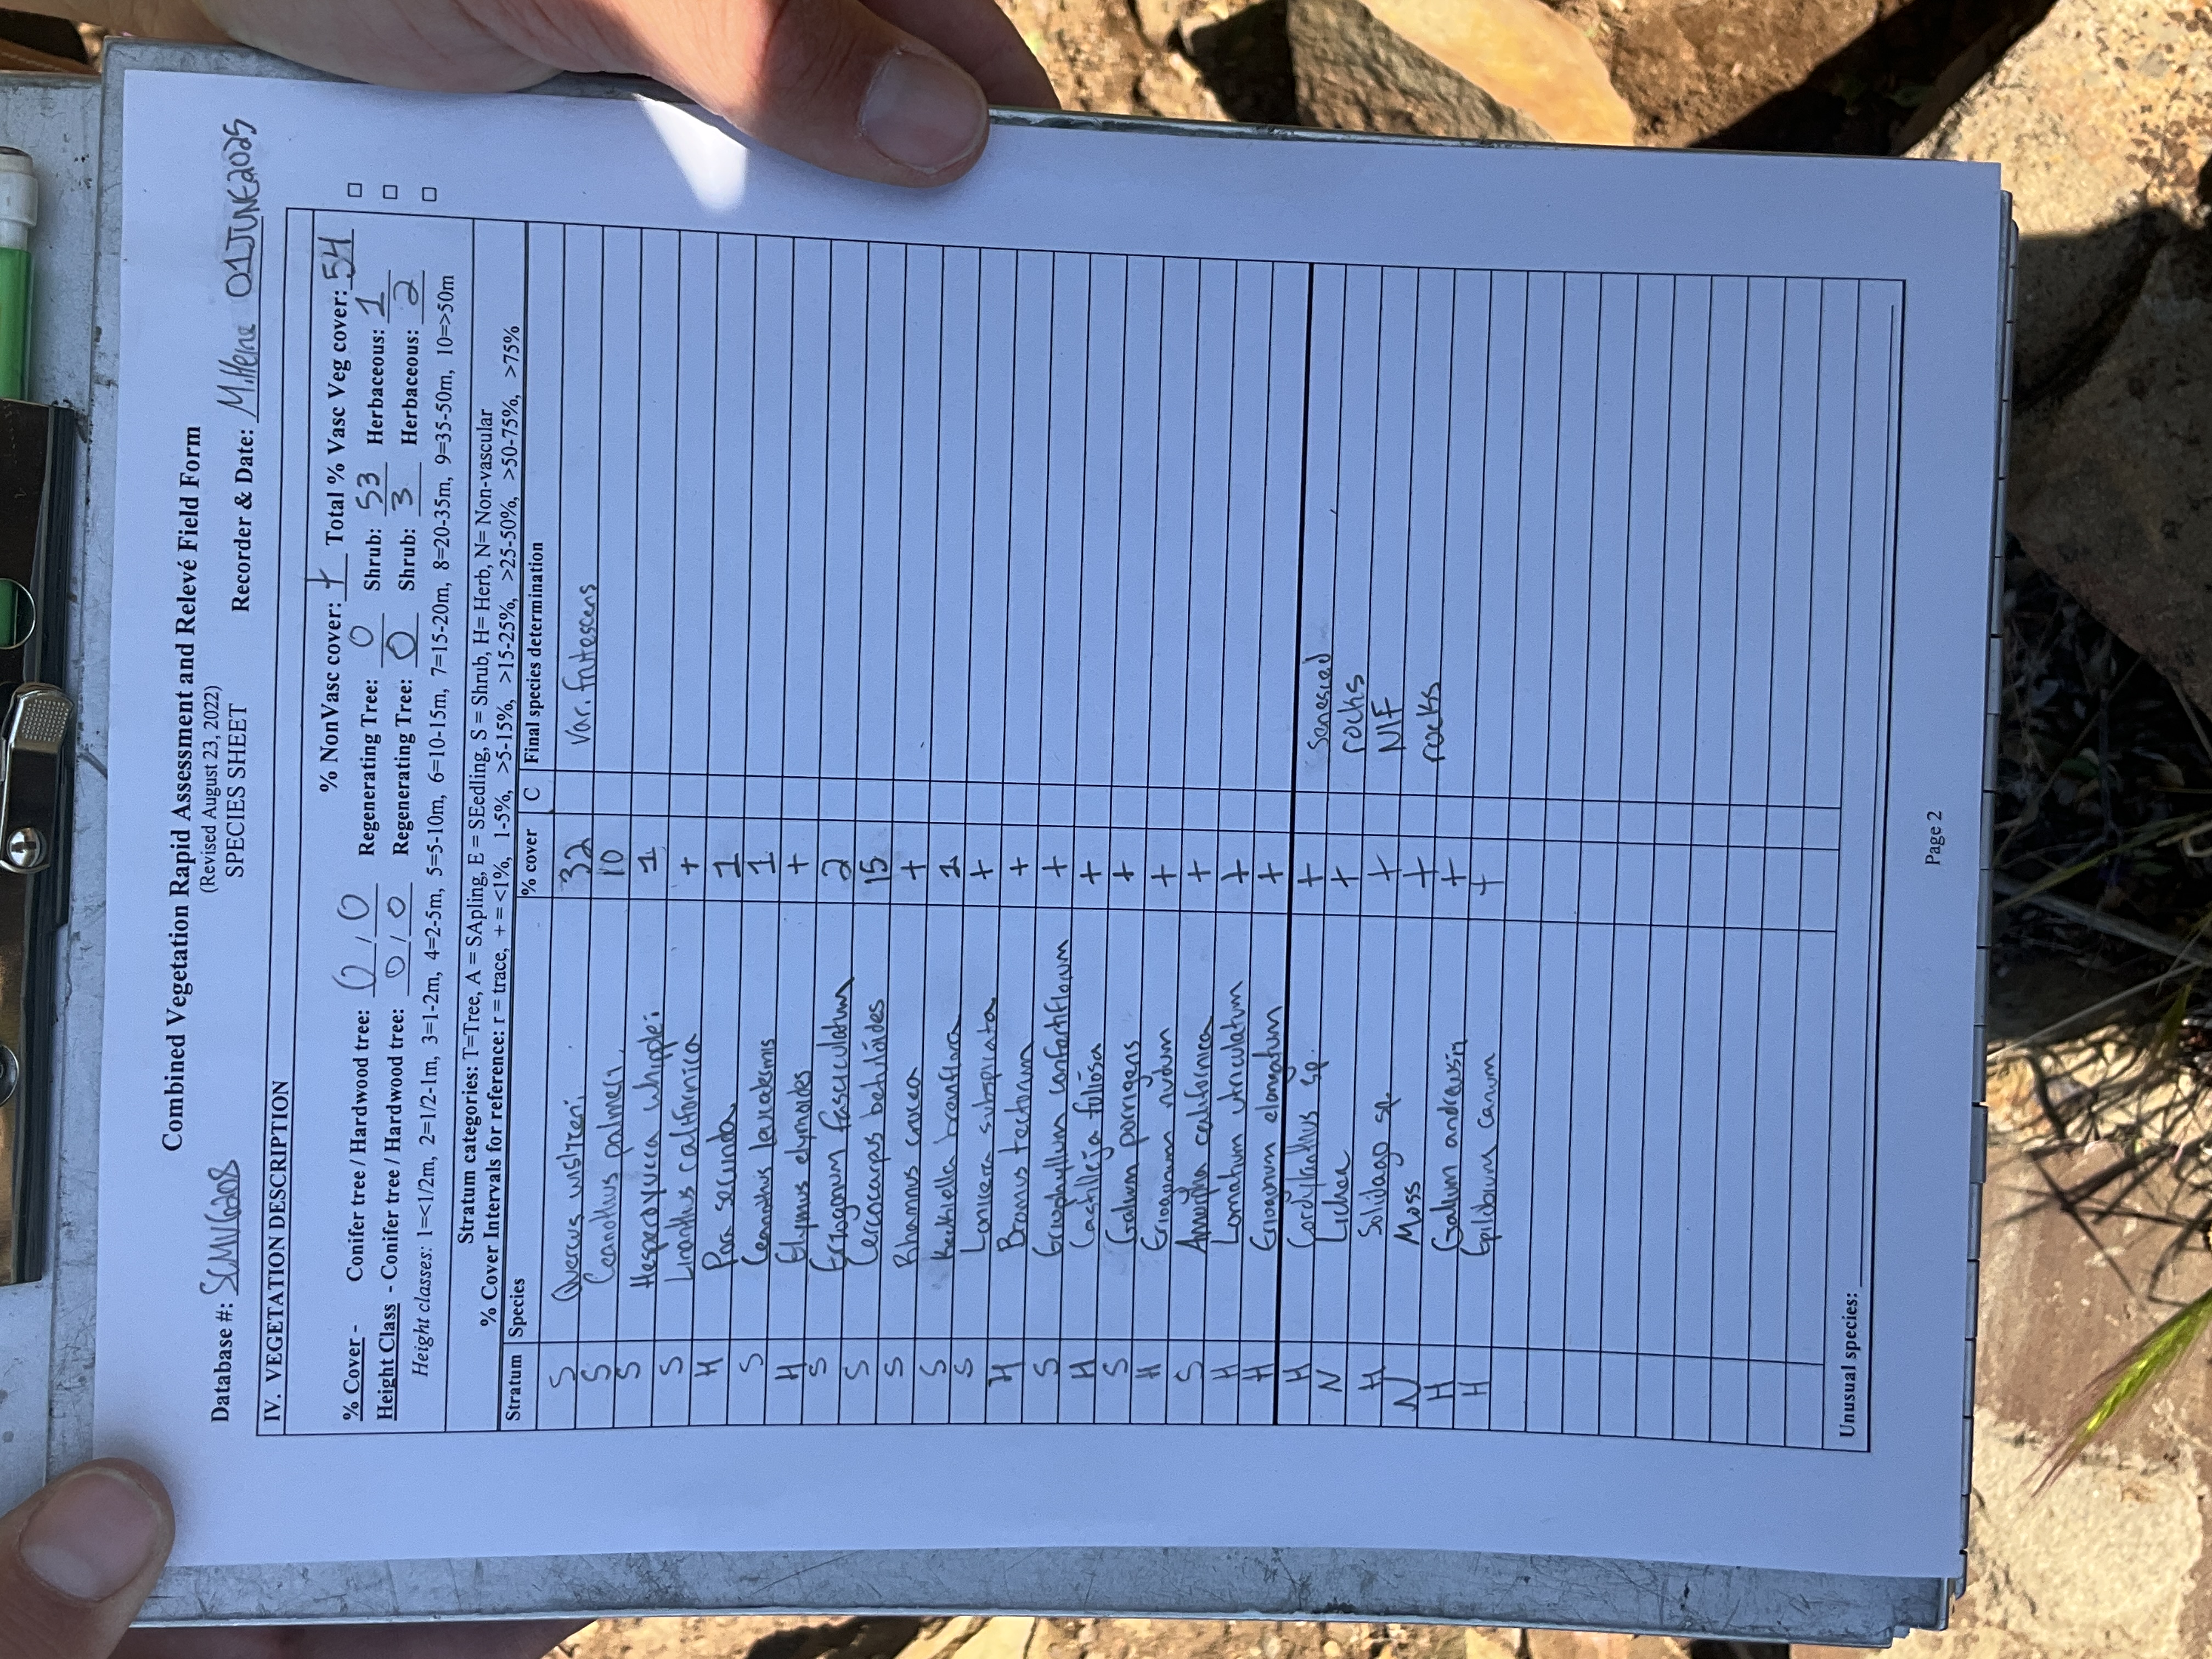 Combined Vegetation Rapid Assessment and Relevé Field Form
(Revised August 23, 2022)
SPECIES SHEET
Database #: SCMI6208 Recorder & Date: 01JUNE2025
IV. VEGETATION DESCRIPTION
% NonVasc cover: + Total % Vasc Veg cover: 54
% Cover - Conifer tree / Hardwood tree: 0 / 0 Regenerating Tree: 0 Shrub: 53 Herbaceous: 1
Height Class - Conifer tree / Hardwood tree: 0 / 0 Regenerating Tree: 0 Shrub: 3 Herbaceous: 2
Height classes: 1=<1/2m, 2=1/2-1m, 3=1-2m, 4=2-5m, 5=5-10m, 6=10-15m, 7=15-20m, 8=20-35m, 9=35-50m, 10=>50m
Stratum categories: T=Tree, A = SApling, E = SEedling, S = Shrub, H= Herb, N= Non-vascular
% Cover Intervals for reference: r = trace, + = <1%, 1-5%, >5-15%, >15-25%, >25-50%, >50-75%, >75%
Stratum Species % cover C Final species determination
S Quercus wislizeni 32 var. frutescens
S Ceanothus palmeri 10
S Hesperoyucca whipplei 1
S Linanthus californica +
H Poa secunda 1
S Ceanothus leucodermis 1
H Elymus elymoides +
S Eriogonum fasciculatum 2
S Cercocarpus betuloides 15
S Rhamnus crocea +
S Keckiella breviflora 1
S Lonicera subspicata +
H Bromus tectorum +
S Eriophyllum confertiflorum +
H Castilleja foliosa +
S Galium porrigens +
H Eriogonum nudum +
S Amorpha californica +
H Lomatium utriculatum +
H Eriogonum elongatum +
H Cordylanthus sp. + Senesced
N Lichen + rocks
H Solidago sp. + NIF
N Moss + rocks
H Galium andrewsii +
H Epilobium canum +
Unusual species:
Page 2